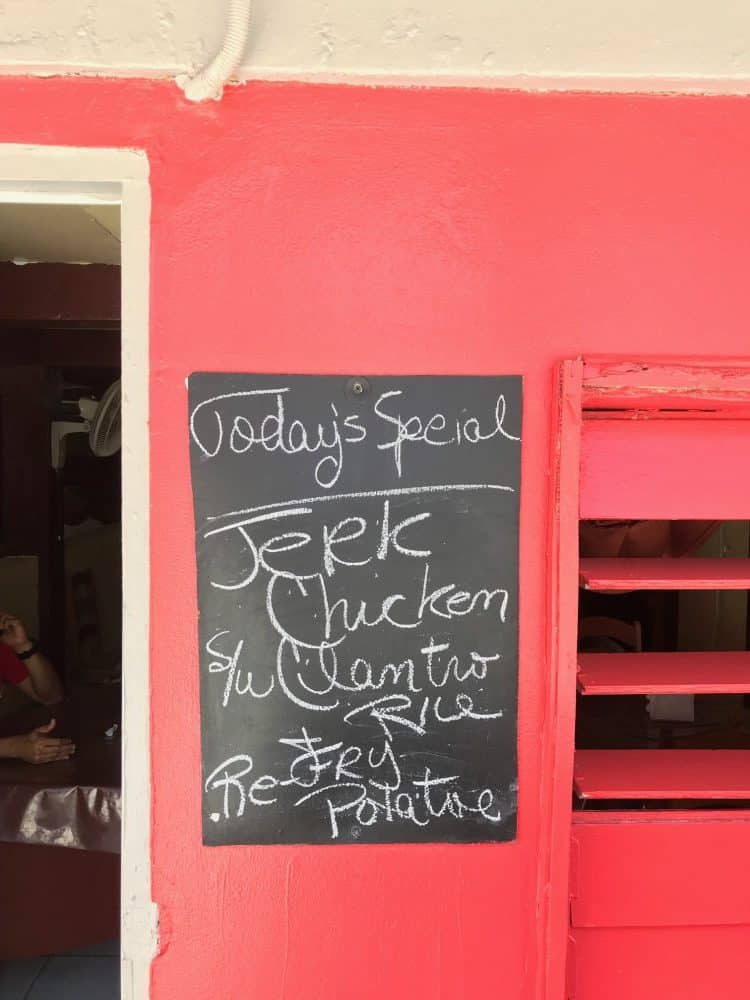 Today's Special
Jerk
Chicken
s/w Cilantro
Rice
Re-Fry
Potatoe